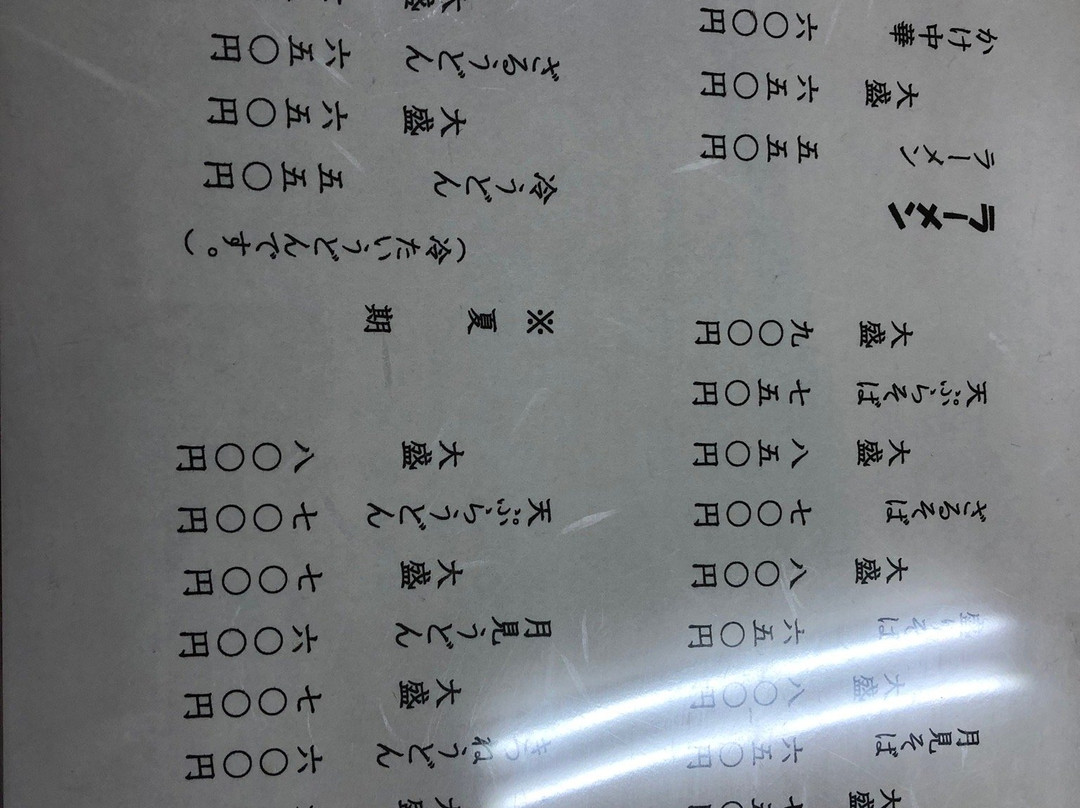 大盛
月見そば 六五〇円
大盛 八〇〇円
そば 六五〇円
大盛 八〇〇円
ざるそば 七〇〇円
大盛 八五〇円
天ぷらそば 七五〇円
大盛 九〇〇円
ラーメン
ラーメン 五五〇円
大盛 六五〇円
かけ中華 六〇〇円
大盛
きつねうどん 六〇〇円
大盛 七〇〇円
月見うどん 六〇〇円
大盛 七〇〇円
天ぷらうどん 七〇〇円
大盛 八〇〇円
※夏期
（冷たいうどんです。）
冷うどん 五五〇円
大盛 六五〇円
ざるうどん 六五〇円
大盛